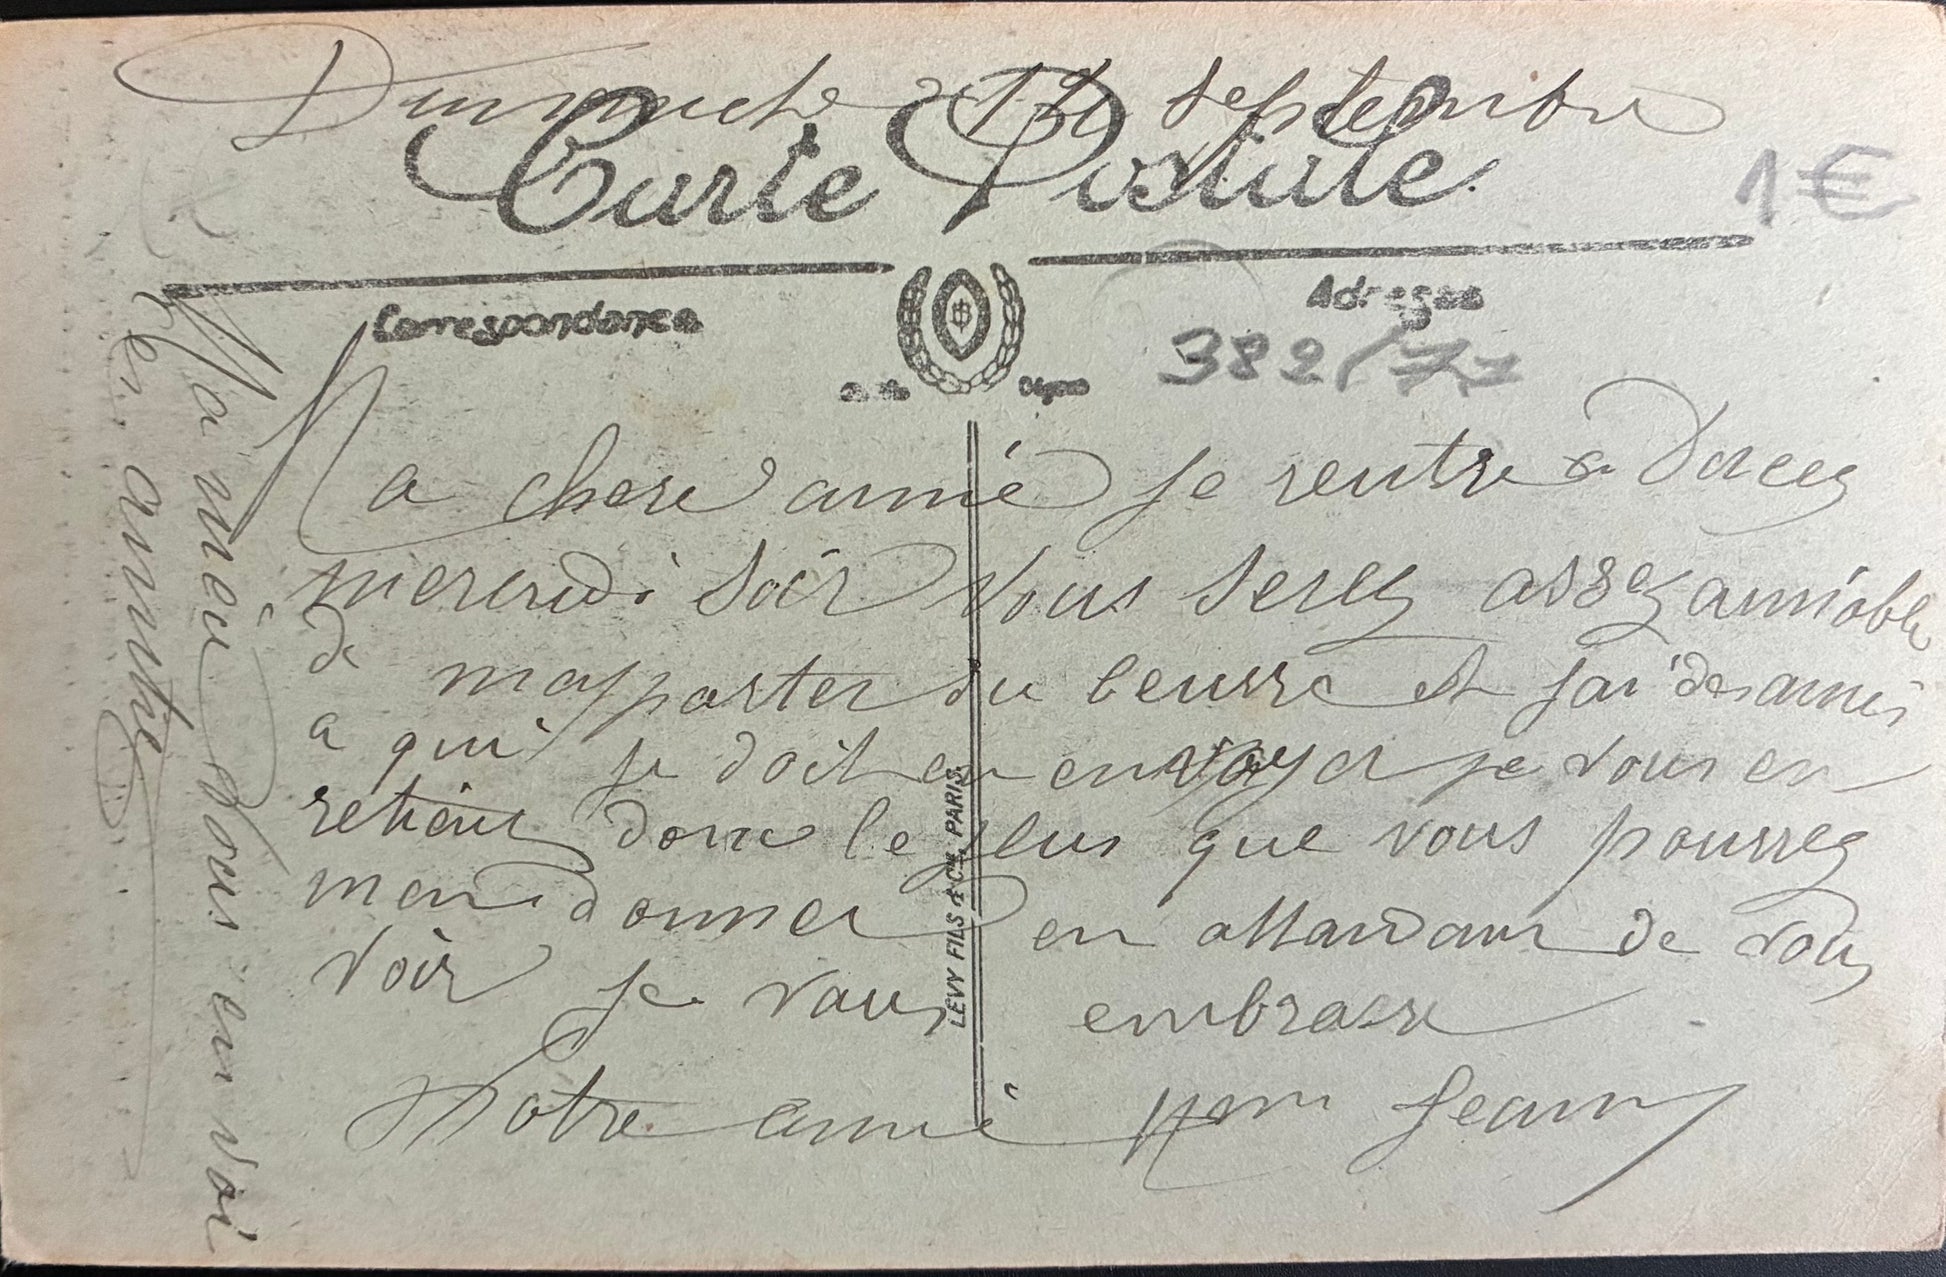 Dimanche septembre
Carte Postale
1€
Correspondance
Adresse
382/77
Ma chere amie je rentre a
mercredi soir vous serez assez amiable
de mapporter du beurre et jai des amis
a qui je doit en envoyer je vous en
retient donc le plus que vous pourrez
men donner en attandant de vous
voir je vous embrasse
Votre amie Jeanny
Ma mère vous envoi
amitié
LEVY FILS & Cie, PARIS.